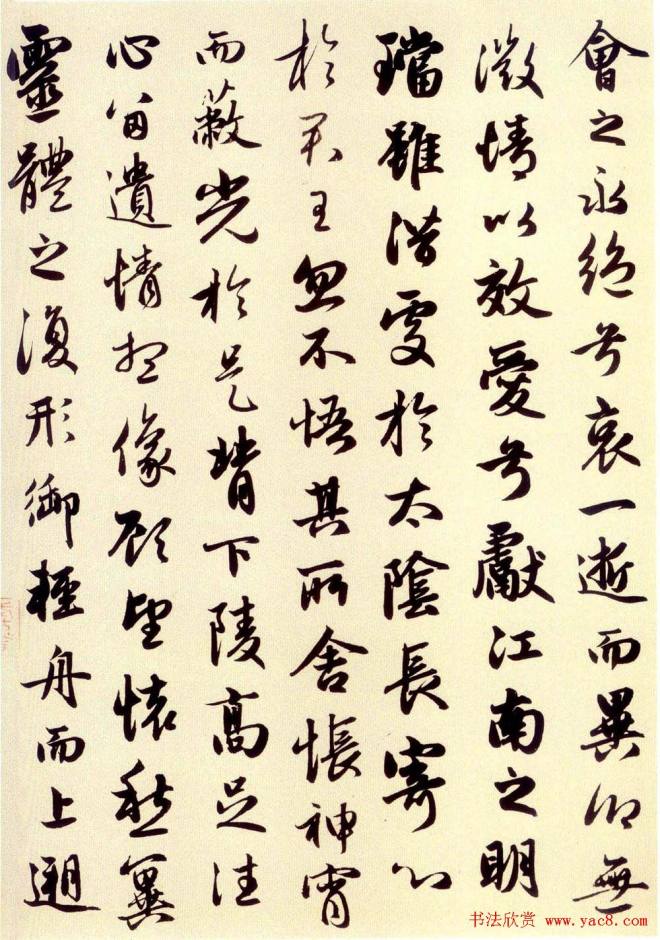 會之永絶兮哀一逝而異鄉無
微情以效愛兮獻江南之明
璫雖潛處於太陰長寄心
於君王忽不悟其所舍悵神宵
而蔽光於是背下陵高足往
心留遺情想像顧望懷愁冀
靈體之復形御輕舟而上遡
书法欣赏 www.yac8.com